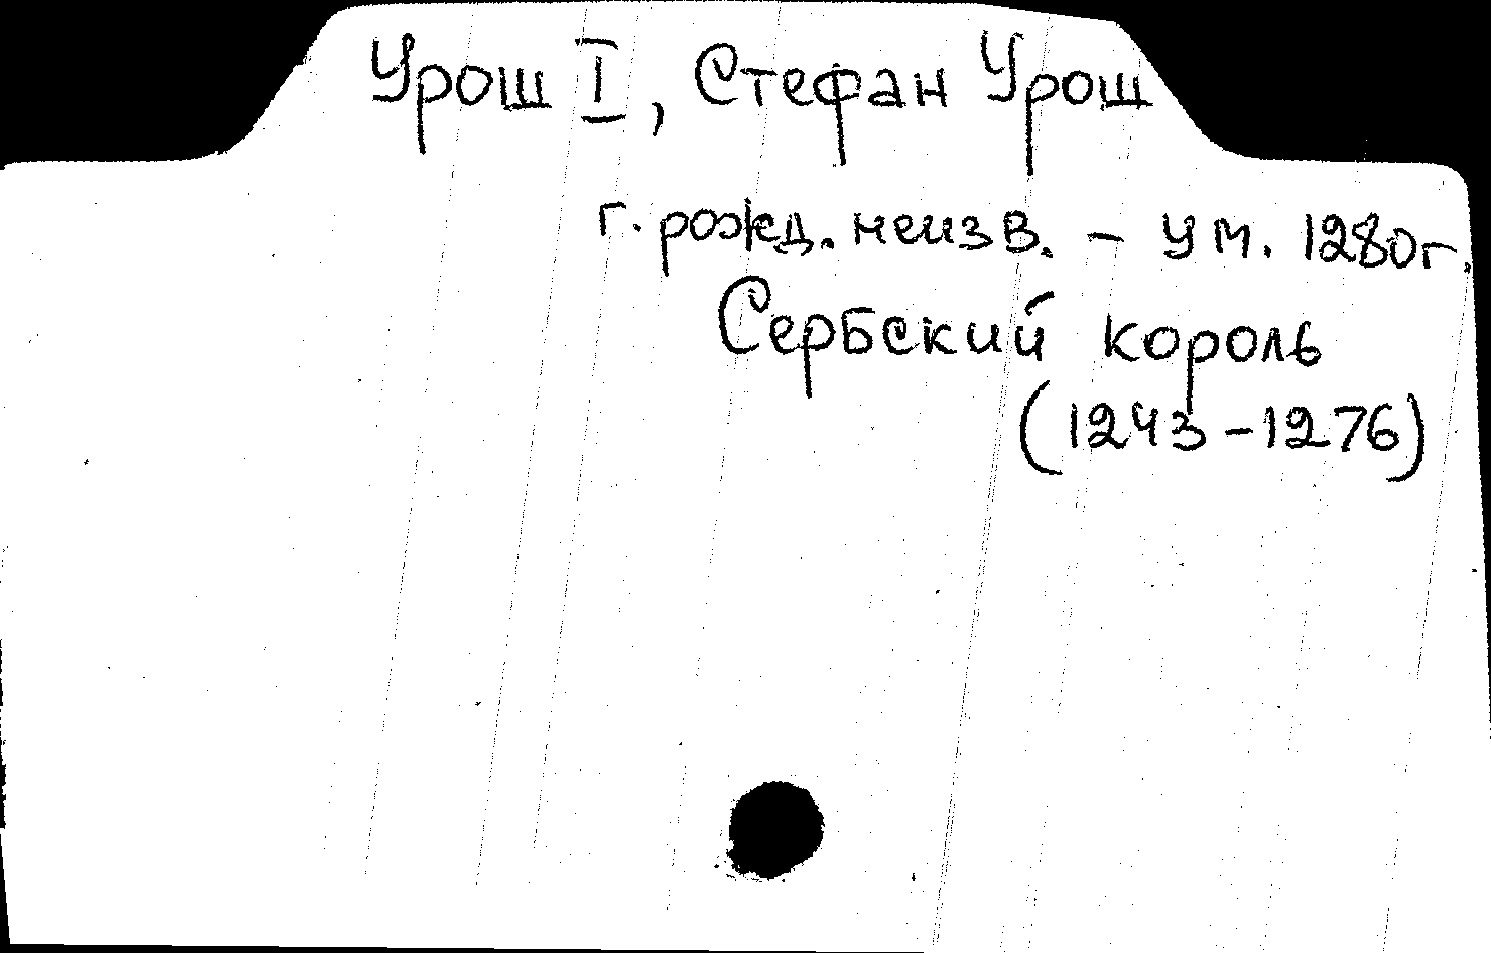 Урош I, Стефан Урош
г. рожд. неизв. - ум. 1280г.
Сербский король
(1243-1276)